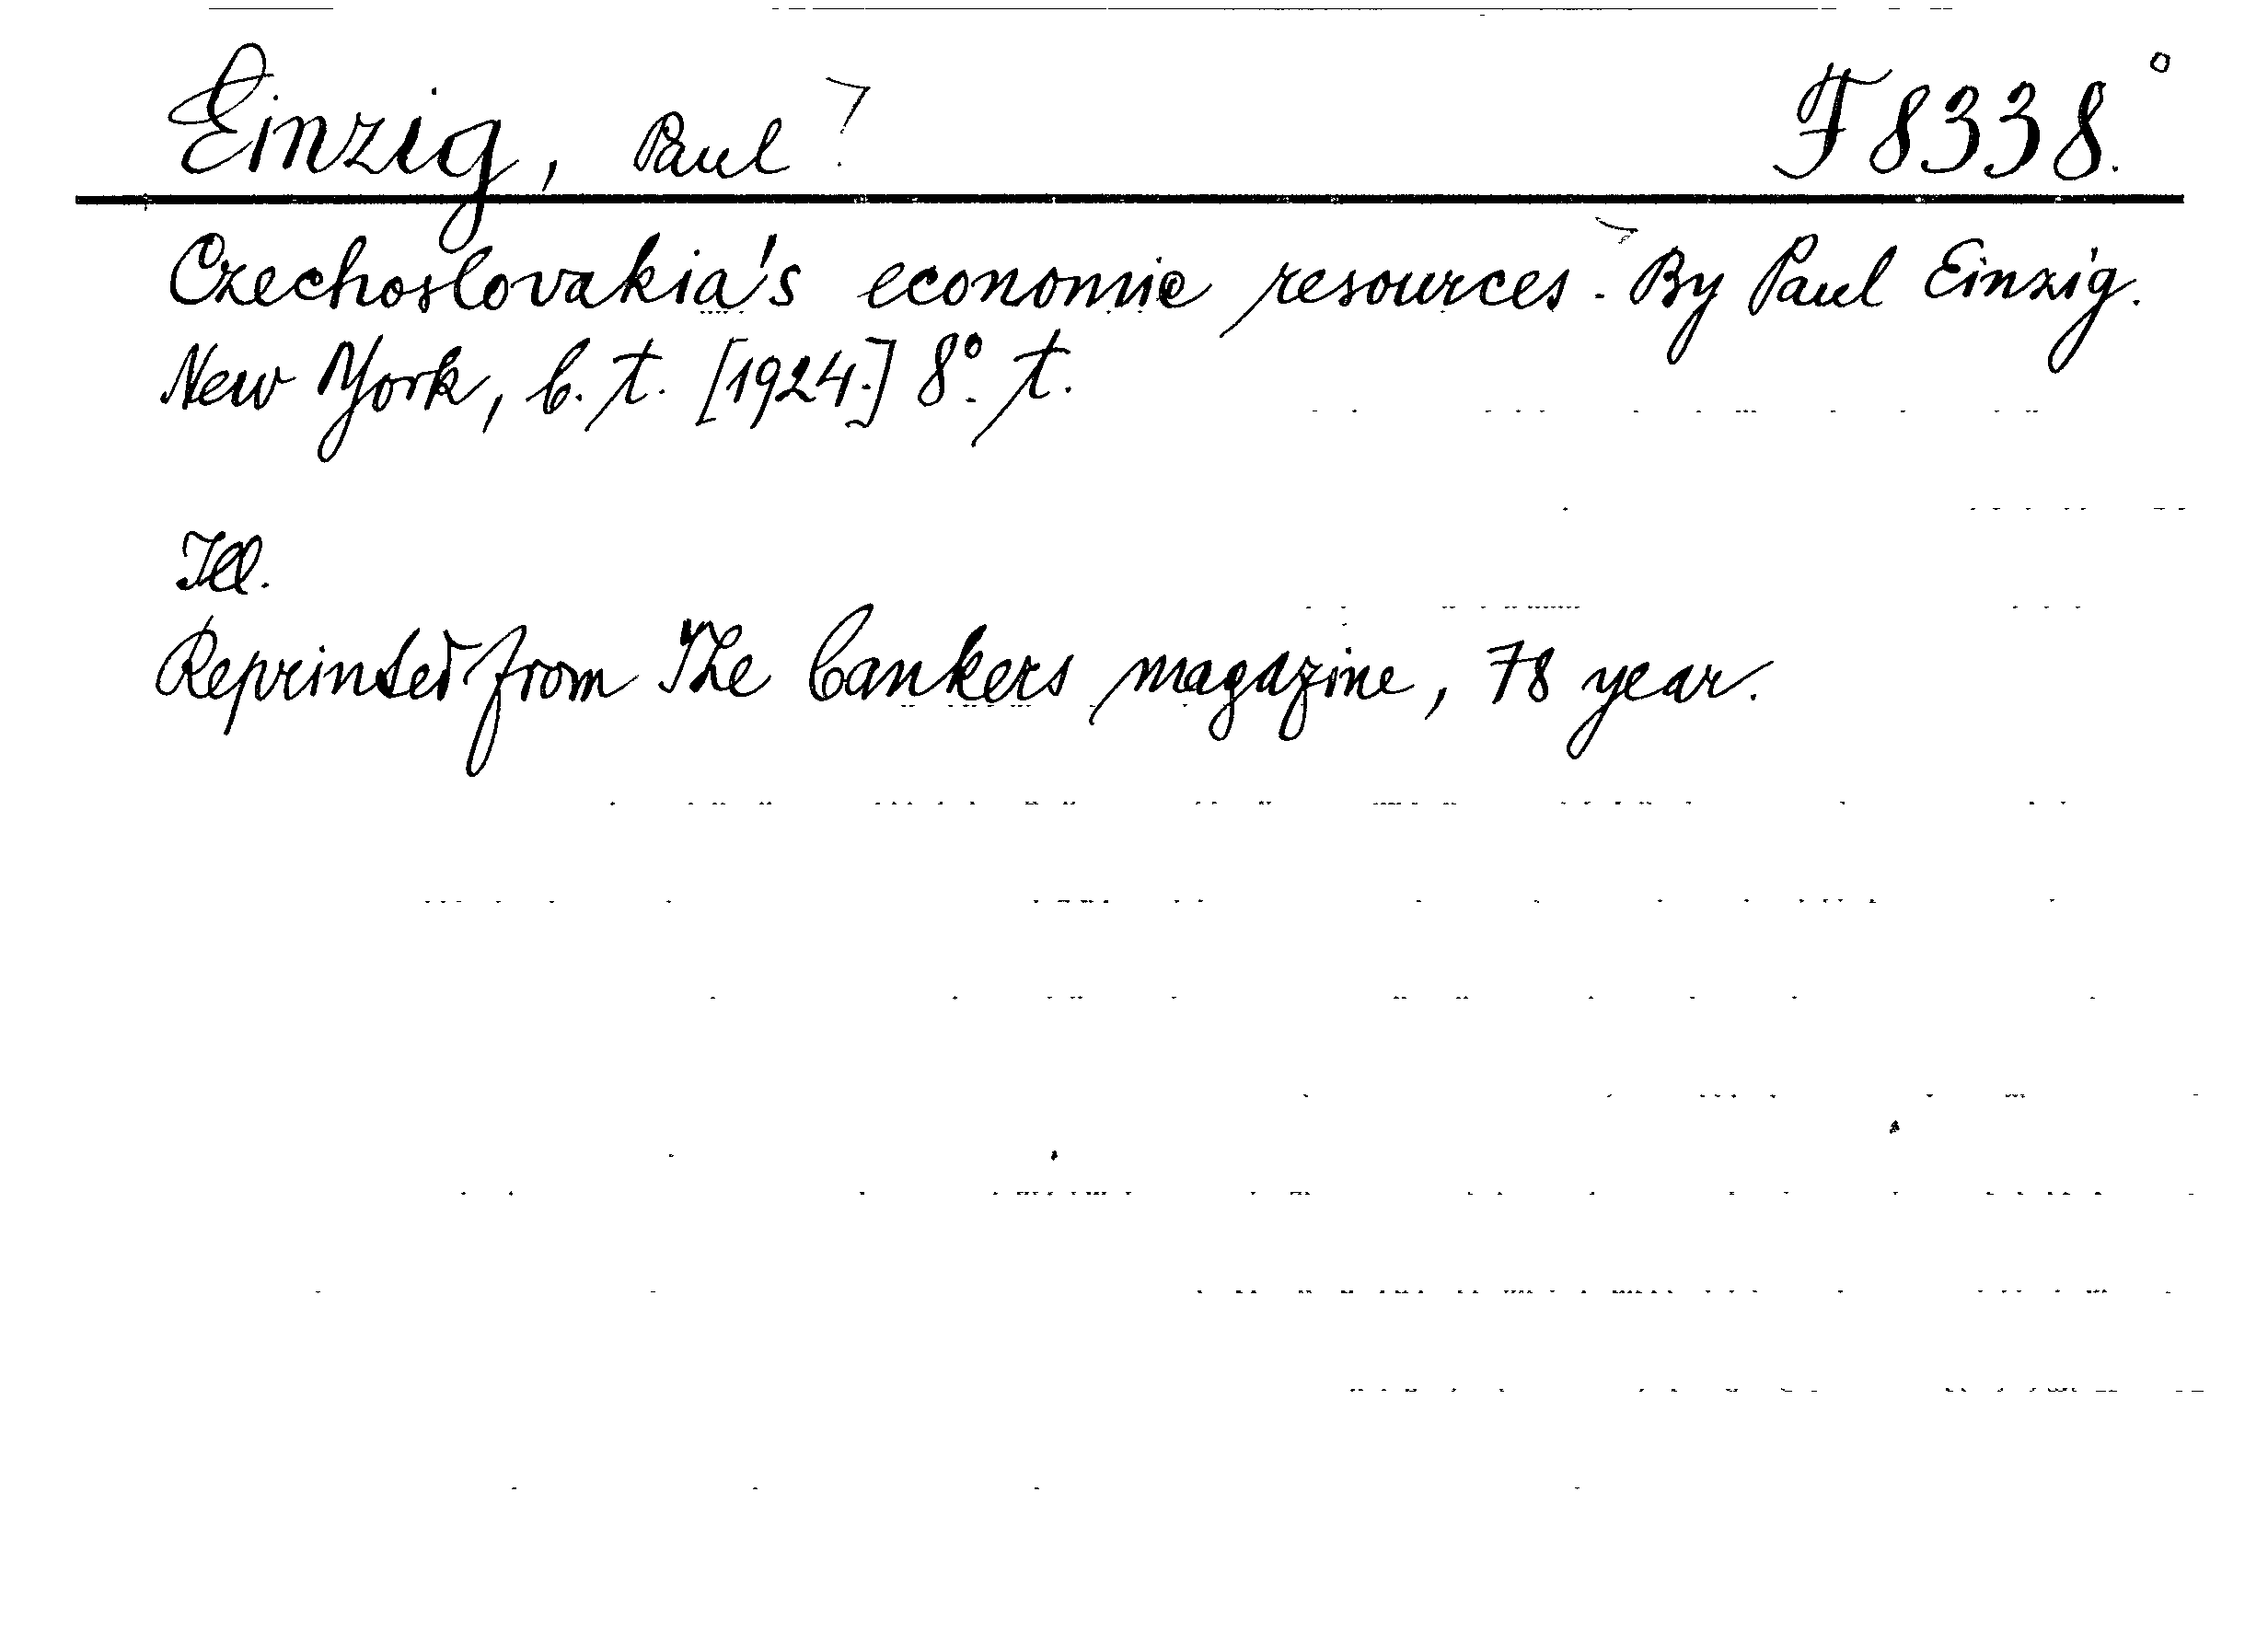 Einzig, Paul F 8338.
Czechoslovakia's economic resources. By Paul Einzig.
New York, b. t. [1924.] 8°. t.
Ill.
Reprinted from The bankers magazine, 78 year.